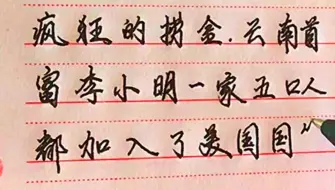 疯狂的捞金.云南首
富李小明一家五口人
都加入了美国国